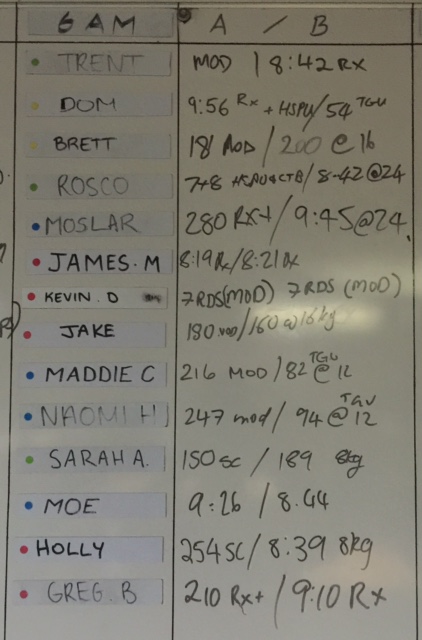 6 AM A / B
TRENT MOD / 8:42 Rx
DOM 9:56 Rx + HSPU / 54 TGU
BRETT 181 MOD / 200 @ 16
ROSCO 748 HSPU & CTB / 8.42 @24
MOSLAR 280 RX+ / 9:45 @24
JAMES. M 8:19 Rx / 8:21 Rx
KEVIN. D 7RDS (MOD) 7RDS (MOD)
JAKE 180 / 160 @ 16kg
MADDIE C 216 MOD / 82 TGU @ 12
NAOMI H 247 mod / 94 TGU @ 12
SARAH A. 150 SC / 189 8kg
MOE 9:26 / 8.44
HOLLY 254 SC / 8:39 8kg
GREG. B 210 RX+ / 9:10 RX